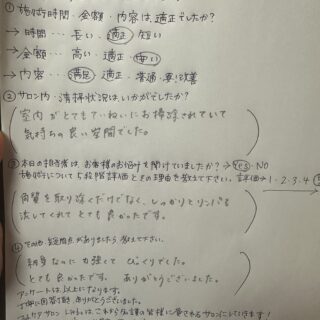 ①施術時間・金額・内容は適正でしたか?
→時間… 長い・適正・短い
→金額… 高い・適正・安い
→内容… 満足・適正・普通・要改善
②サロン内・清掃状況はいかがでしたか?
室内がとてもていねいにお掃除されていて
気持ちの良い空間でした。
③本日の担当者はお客様のお悩みを聞けていましたか?→Yes・NO
施術について5段階評価とその理由を教えて下さい。評価→1・2・3・4
角質を取り除くだけでなく、しっかりとリンパも
流してくれてとても良かったです。
疑問点がありましたら教えて下さい。
なのに力強くてびっくりでした。
とても良かったです。ありがとうございました。
アンケートは以上になります。
ご回答頂きありがとうございました。